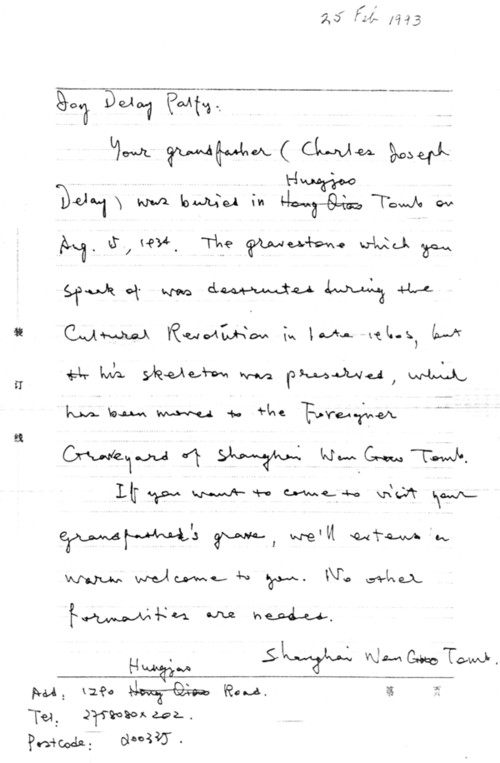 25 Feb 1993
Joy Delay Patty:
Your grandfather ( Charles Joseph
Hungjao
Delay) was buried in Hong Qiao Tomb on
Aug. 5, 1934. The gravestone which you
speak of was destructed during the
Cultural Revolution in late 1960s, but
th his skeleton was preserved, which
has been moved to the Foreigner
Graveyard of Shanghai Wan Guo Tomb.
If you want to come to visit your
grandfather's grave, we'll extend a
warm welcome to you. No other
formalities are needed.
Shanghai Wan Guo Tomb.
Hungjao
Add: 1290 Hong Qiao Road.
Tel: 2758080x202.
Postcode: 200335.
装
订
线
第 页